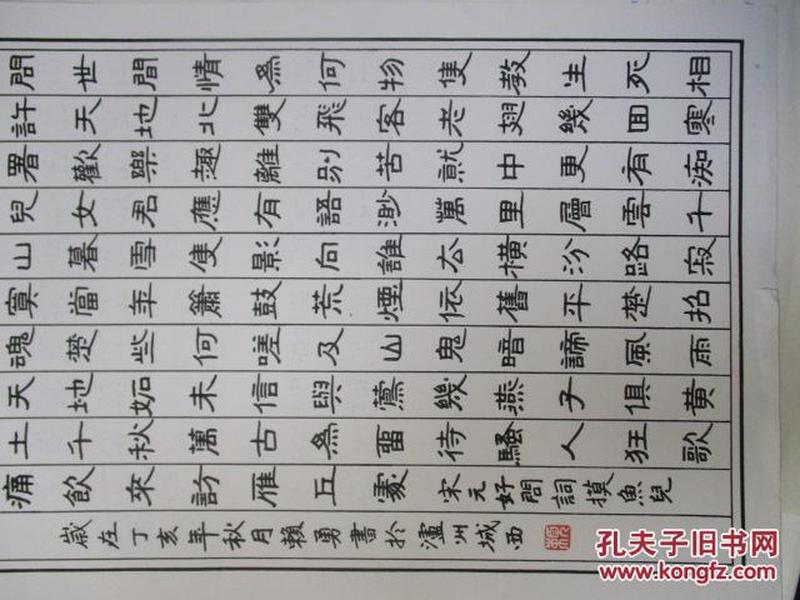 問世間情為何物隻教生死相
許天地北雙飛客老翅幾回寒
署歡樂趣離別苦就中更有痴
兒女君應有語渺萬里層雲千
山暮雪隻影向誰去橫汾路寂
寞當年簫鼓荒煙依舊平楚招
魂楚些何嗟及山鬼暗諦風雨
天地妬未信與鶯幾燕子俱黃
土千秋萬古為畱待騷人狂歌
痛飲來訪雁丘處 宋元好問詞摸魚兒
歲在丁亥年秋月賴勇書於瀘州城西
孔夫子旧书网
www.kongfz.com